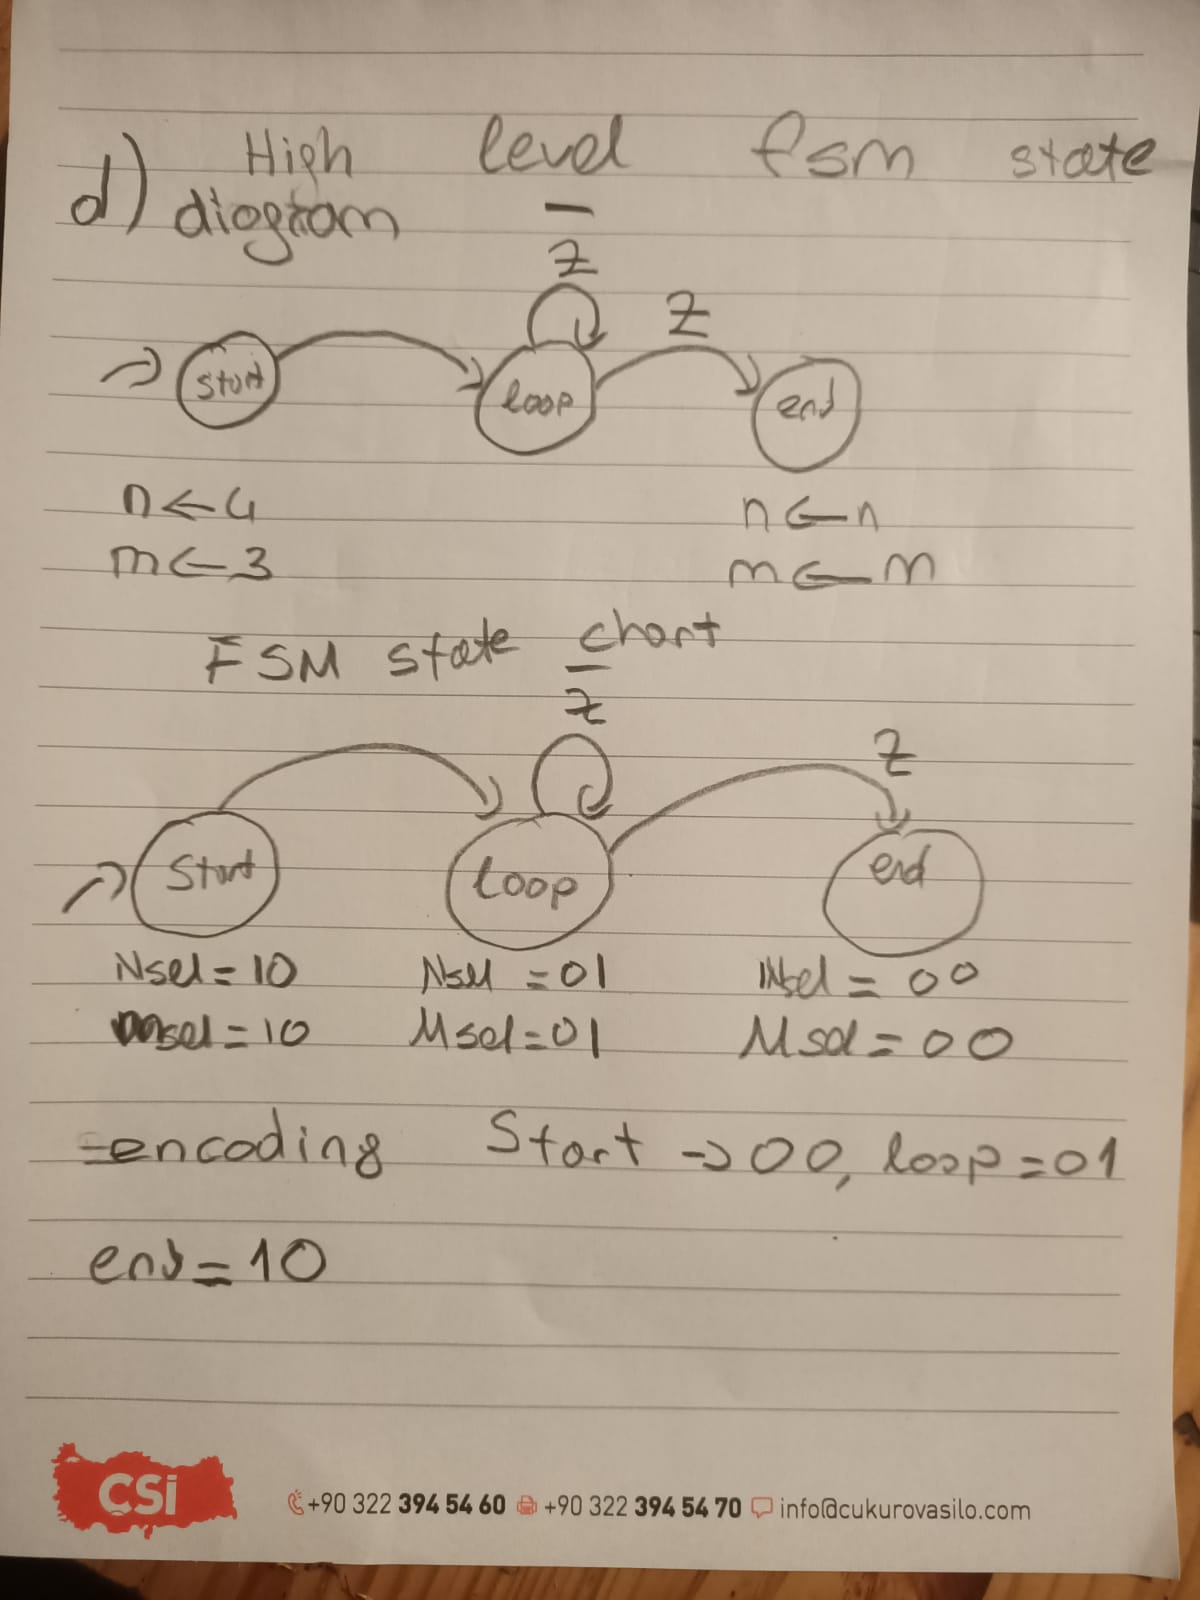 d) High level fsm state
diagram
z̅
z
start loop end
n ← 4 n ← n
m ← 3 m ← m
FSM state chart
z̅
z
Start loop end
Nsel = 10 Nsel = 01 Nsel = 00
msel = 10 Msel = 01 Msel = 00
encoding Start → 00, loop = 01
end = 10
CSi +90 322 394 54 60 +90 322 394 54 70 info@cukurovasilo.com